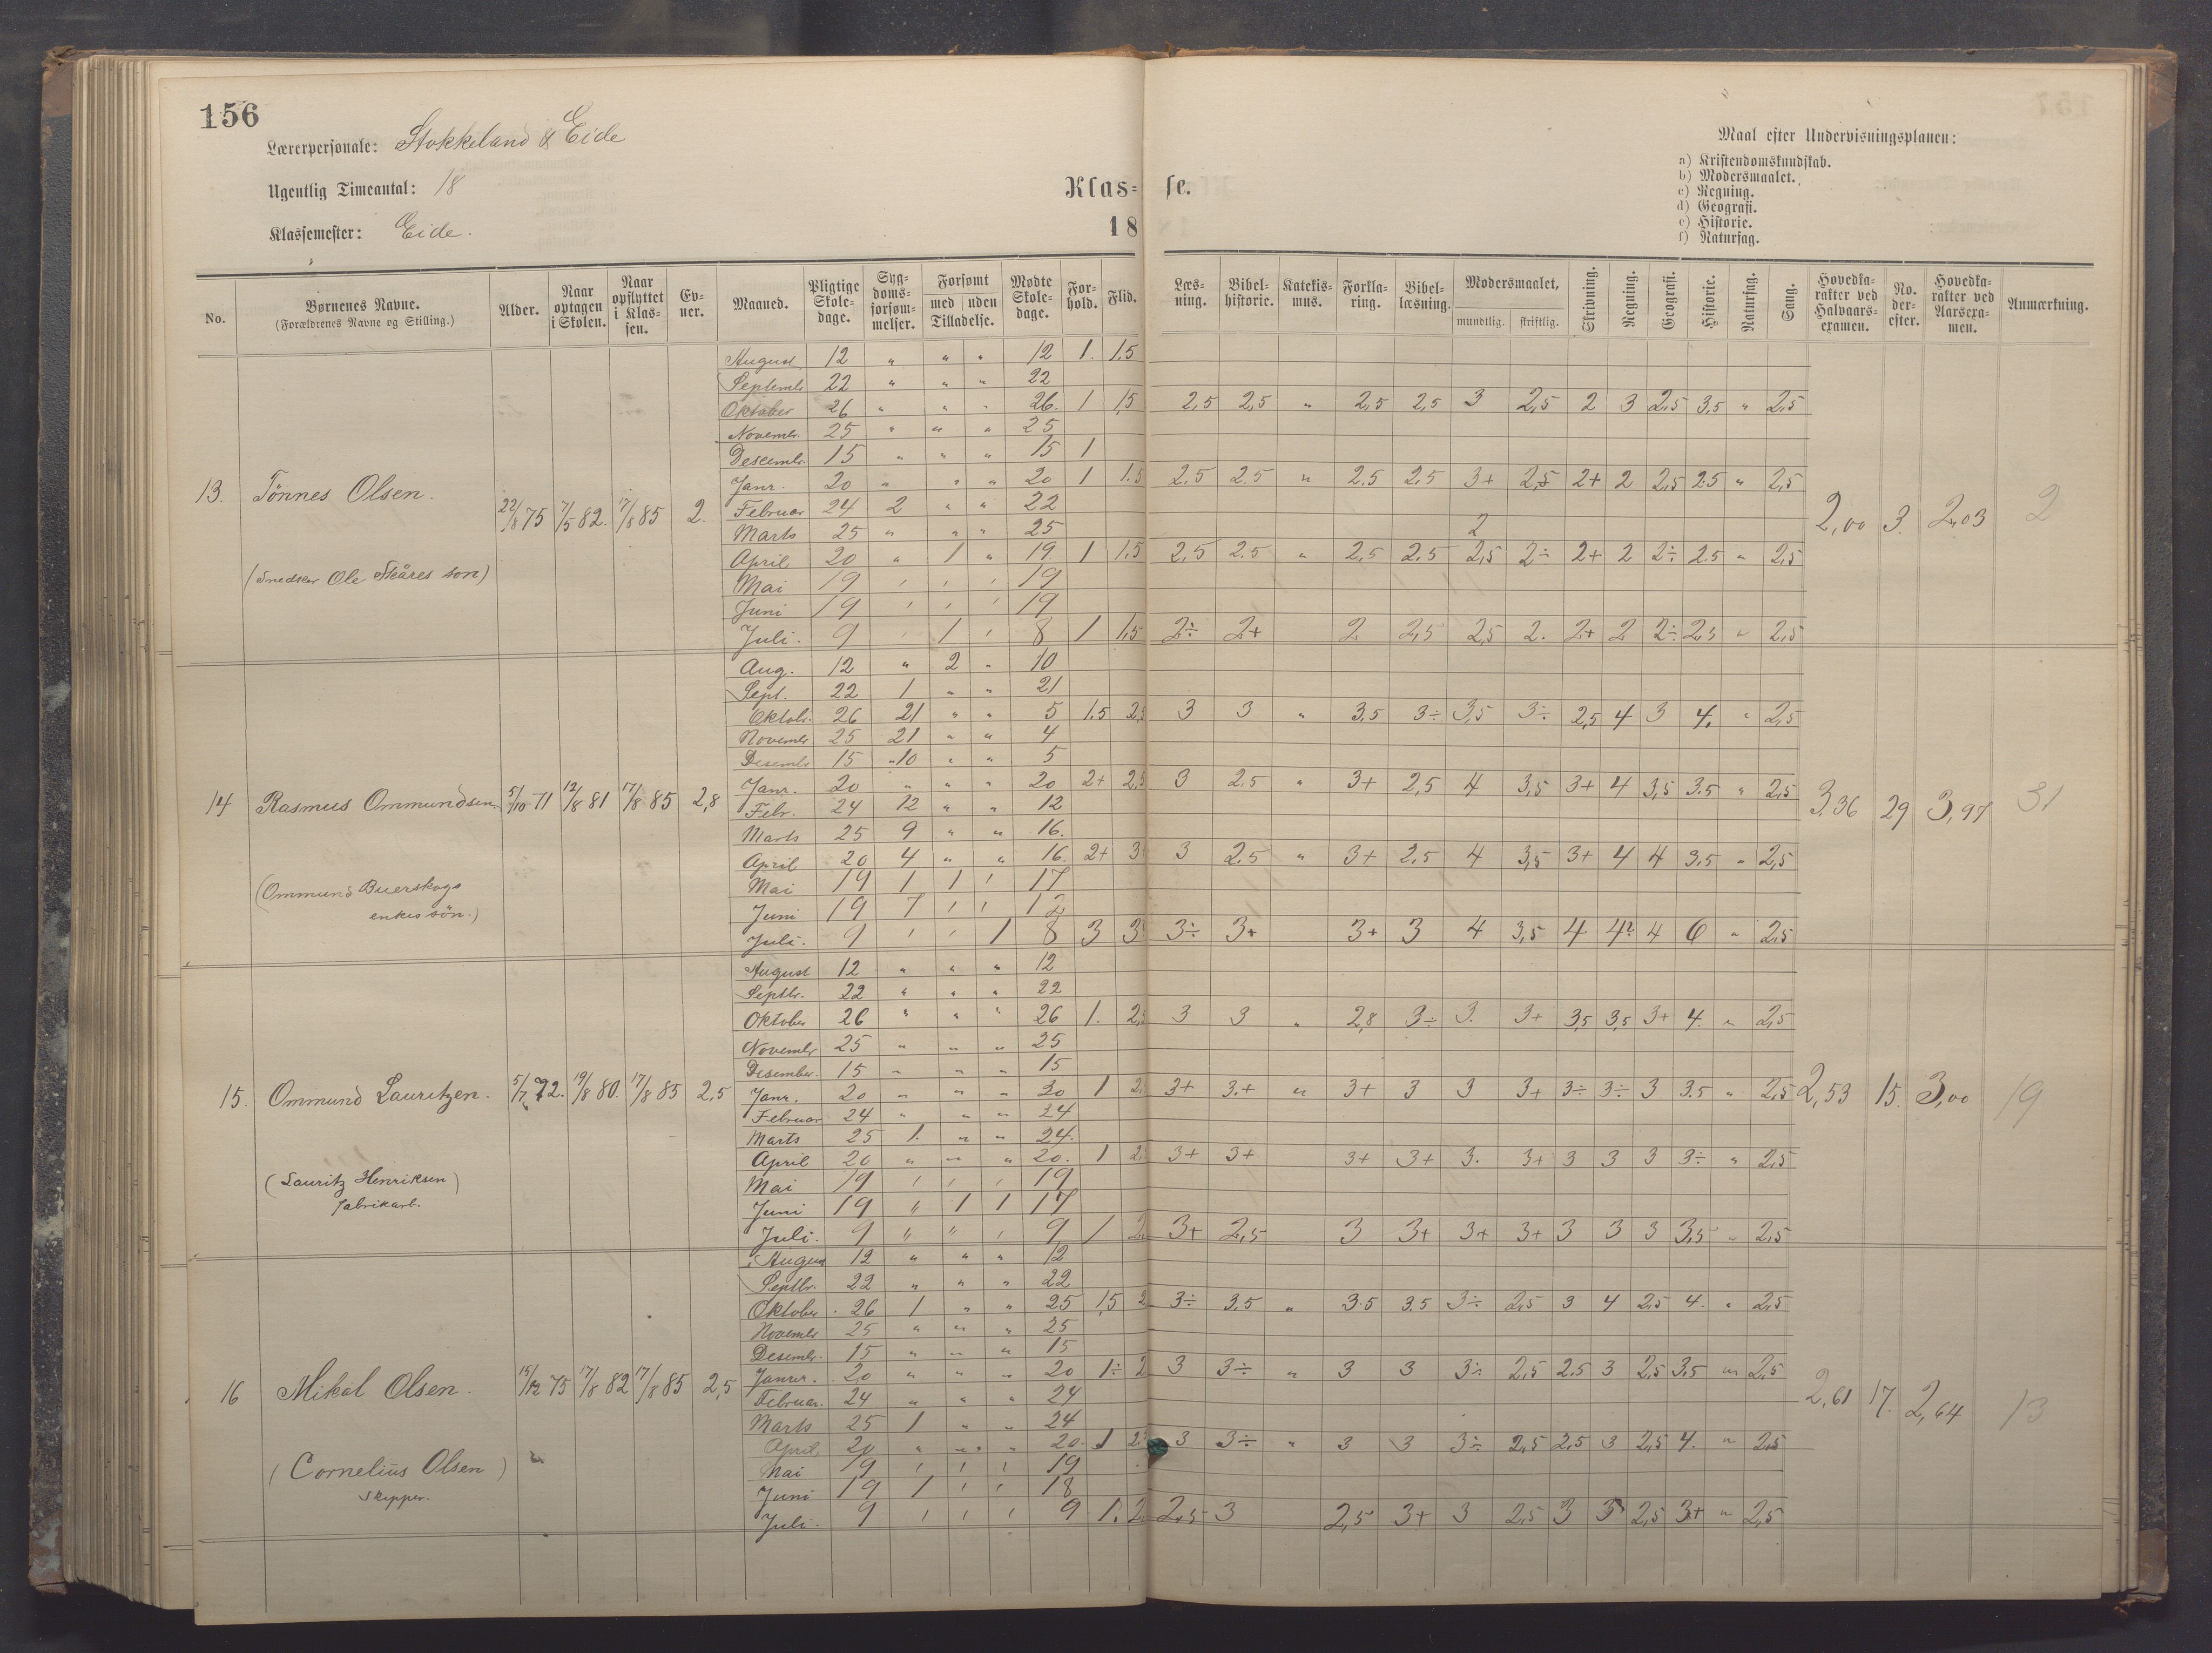 156
Lærerpersonale: Stokkeland & Eide
Ugentlig Timeantal: 18
Klassemester: Eide.
Klas= se.
18
Maal efter Undervisningsplanen:
a) Kristendomskundskab.
b) Modersmaalet.
c) Regning.
d) Geografi.
e) Historie.
f) Naturfag.
No. Børnenes Navne. (Forældrenes Navne og Stilling.) Alder. Naar optagen i Skolen. Naar opflyttet i Klas-sen. Ev-ner. Maaned. Pligtige Skole-dage. Syg-doms-forsøm-melser. Forsømt med uden Tilladelse. Mødte Skole-dage. For-hold. Flid. Læs-ning. Bibel-historie. Katekis-mus. Forkla-ring. Bibel-læsning. Modersmaalet, mundtlig. skriftlig. Skrivning. Regning. Geografi. Historie. Naturfag. Sang. Hovedka-rakter ved Halvaars-examen. No-der-efter. Hovedka-rakter ved Aarsexa-men. Anmærkning.
August 12 " " " 12 1. 1.5
Septembr 22 " " " 22
Oktober 26 " " " 26. 1 1,5 2,5 2,5 " 2,5 2,5 3 2,5 2 3 2,5 3,5 " 2,5
Novembr. 25 " " " 25
Desembr. 15 " " " 15 1
Janr. 20 " " " 20 1 1.5 2.5 2.5 " 2.5 2.5 3+ 2,5 2+ 2 2,5 2.5 " 2,5
13. Tönnes Olsen. 22/8 75 7/5 82. 17/8 85 2. Februar 24 2 " " 22 2,00 3. 2,03 2
Marts 25 " " " 25 2
April 20 " 1 " 19 1 1,5 2,5 2.5 " 2,5 2.5 2,5 2÷ 2+ 2 2÷ 2.5 " 2,5
(Snedker Ole Skåres sön) Mai 19 ' ' ' 19
Juni 19 ' ' ' 19
Juli. 9 ' 1 ' 8 1 1,5 2÷ 2+ 2 2,5 2,5 2. 2+ 2 2÷ 2,5 " 2,5
Aug. 12 " 2 " 10
Sept. 22 1 " " 21
Oktobr. 26 21 " " 5 1.5 2,5 3 3 " 3.5 3÷ 3,5 3÷ 2,5 4 3 4. " 2,5
Novembr 25 21 " " 4
Desembr 15 10 " " 5
Janr. 20 " " " 20 2+ 2,5 3 2.5 " 3+ 2,5 4 3,5 3+ 4 3,5 3.5 " 2,5
14 Rasmus Ommundsen 5/10 71 12/8 81 17/8 85 2,8 Febr. 24 12 " " 12 3,36 29 3,97 31
Marts 25 9 " " 16.
April 20 4 " " 16. 2+ 3 3 2.5 " 3+ 2,5 4 3,5 3+ 4 4 3,5 " 2,5
(Ommund Buerskogs Mai 19 1 1 ' 17
enkes sön.) Juni 19 7 ' ' 12
Juli. 9 ' ' 1 8 3 3 3÷ 3+ 3+ 3 4 3,5 4 4? 4 6 " 2,5
August 12 " " " 12
Septbr. 22 " " " 22
Oktober 26 " " " 26 1. 2,5 3 3 " 2,8 3÷ 3. 3+ 3,5 3,5 3+ 4. " 2,5
Novembr 25 " " " 25
Desember. 15 " " " 15
15. Ommund Lauritzen. 5/7 72. 19/8 80. 17/8 85 2,5 Janr. 20 " " " 20 1 2. 3+ 3.+ " 3+ 3 3 3+ 3÷ 3÷ 3 3.5 " 2,5 2,53 15. 3,00 19
Februar 24 " " " 24
Marts 25 1. " " 24.
April 20 " " " 20. 1 2. 3+ 3+ 3+ 3+ 3. 3+ 3 3 3 3÷ " 2,5
(Lauritz Henriksen) Mai 19 ' ' ' 19
fabrikarb. Juni 19 " 1 1 17
Juli. 9 " " ' 9 1 2, 3+ 2,5 3 3+ 3+ 3+ 3 3 3 3,5 " 2,5
August 12 " " " 12
Septbr. 22 " " " 22
Oktober 26 1 " " 25 1,5 2 3÷ 3.5 " 3.5 3.5 3÷ 2,5 3 4 2,5 4. " 2,5
Novembr 25 " " " 25
Desembr. 15 " " " 15
Janur. 20 " " " 20 1÷ 2 3 3÷ " 3 3 3÷ 2,5 2.5 3 2,5 3,5 " 2,5
16 Mikal Olsen. 15/12 75 17/8 82 17/8 85 2,5 Februar. 24 " " " 24 2,61 17. 2,64 13
Marts 25 1 " " 24
April 20 " " " 20. 1 2. 3 3÷ " 3 3 3÷ 2,5 2,5 3 2,5 4. " 2,5
(Cornelius Olsen) Mai 19 ' ' ' 19
Skipper. Juni 19 1 ' ' 18
Juli. 9 ' ' ' 9 1. 2, 2,5 3 2,5 3+ 3 2,5 3 3 2,5 3+ " 2,5